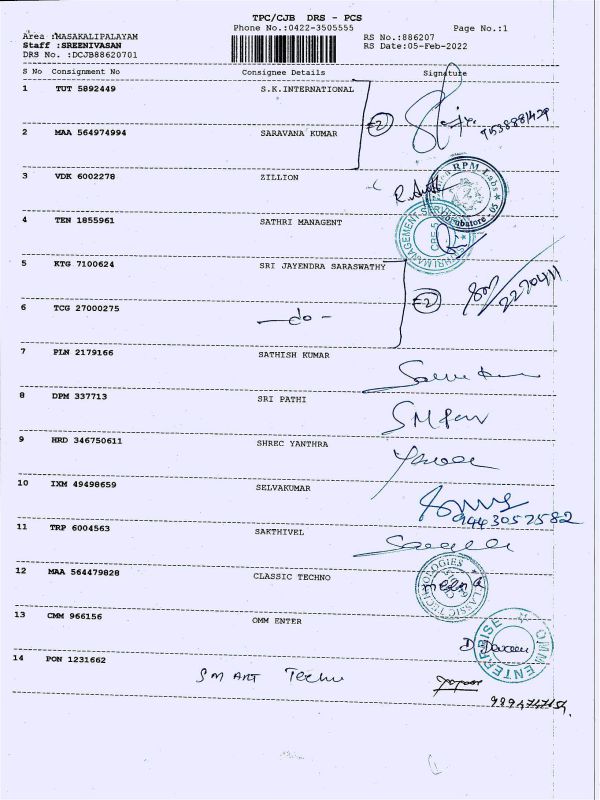 TPC/CJB DRS - PCS
Phone No.:0422-3505555
Page No.:1
Area :MASAKALIPALAYAM
Staff :SREENIVASAN
DRS No. :DCJB88620701
RS No.:886207
RS Date:05-Feb-2022
S No Consignment No Consignee Details Signature
1 TUT 5892449 S.K.INTERNATIONAL
2 MAA 564974994 SARAVANA KUMAR
3 VDK 6002278 ZILLION
4 TEN 1855961 SATHRI MANAGENT
5 KTG 7100624 SRI JAYENDRA SARASWATHY
6 TCG 27000275 -do-
7 PLN 2179166 SATHISH KUMAR
8 DPM 337713 SRI PATHI
9 HRD 346750611 SHREC YANTHRA
10 IXM 49498659 SELVAKUMAR
9443057582
11 TRP 6004563 SAKTHIVEL
12 MAA 564479828 CLASSIC TECHNO
CLASSIC TECHNOLOGIES
13 CMM 966156 OMM ENTER
OMM ENTERPRISE
14 PON 1231662 SMART Techu